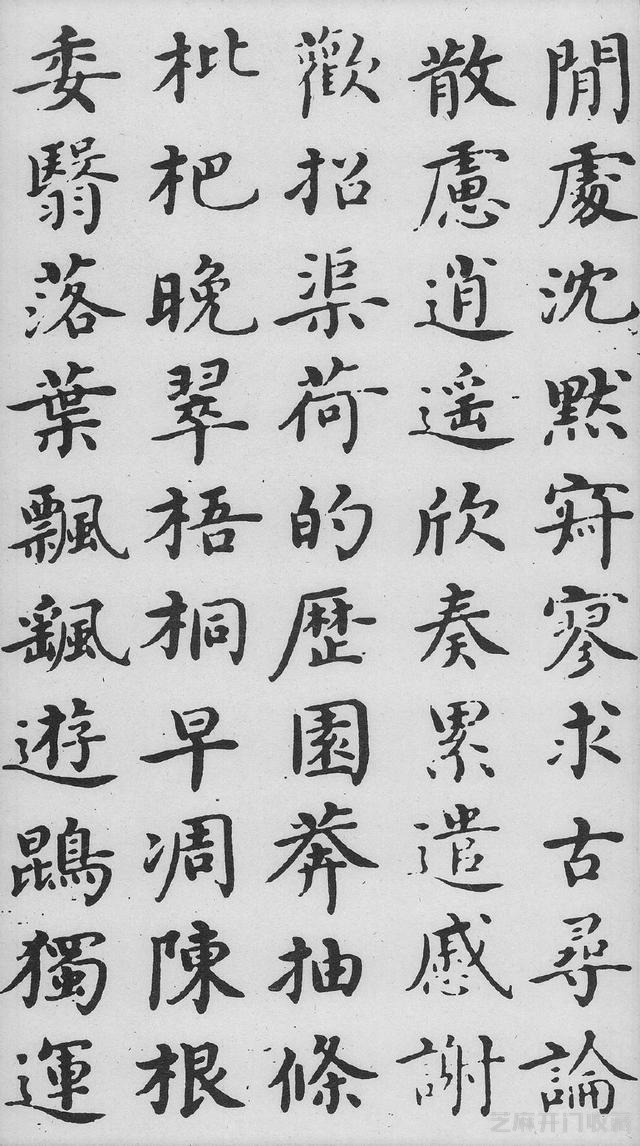 閒處沈默寂寥求古尋論
散慮逍遥欣奏累遣慼謝
歡招渠荷的歷園莽抽條
枇杷晚翠梧桐早凋陳根
委翳落葉飄颻遊鵾獨運
芝麻开门收藏